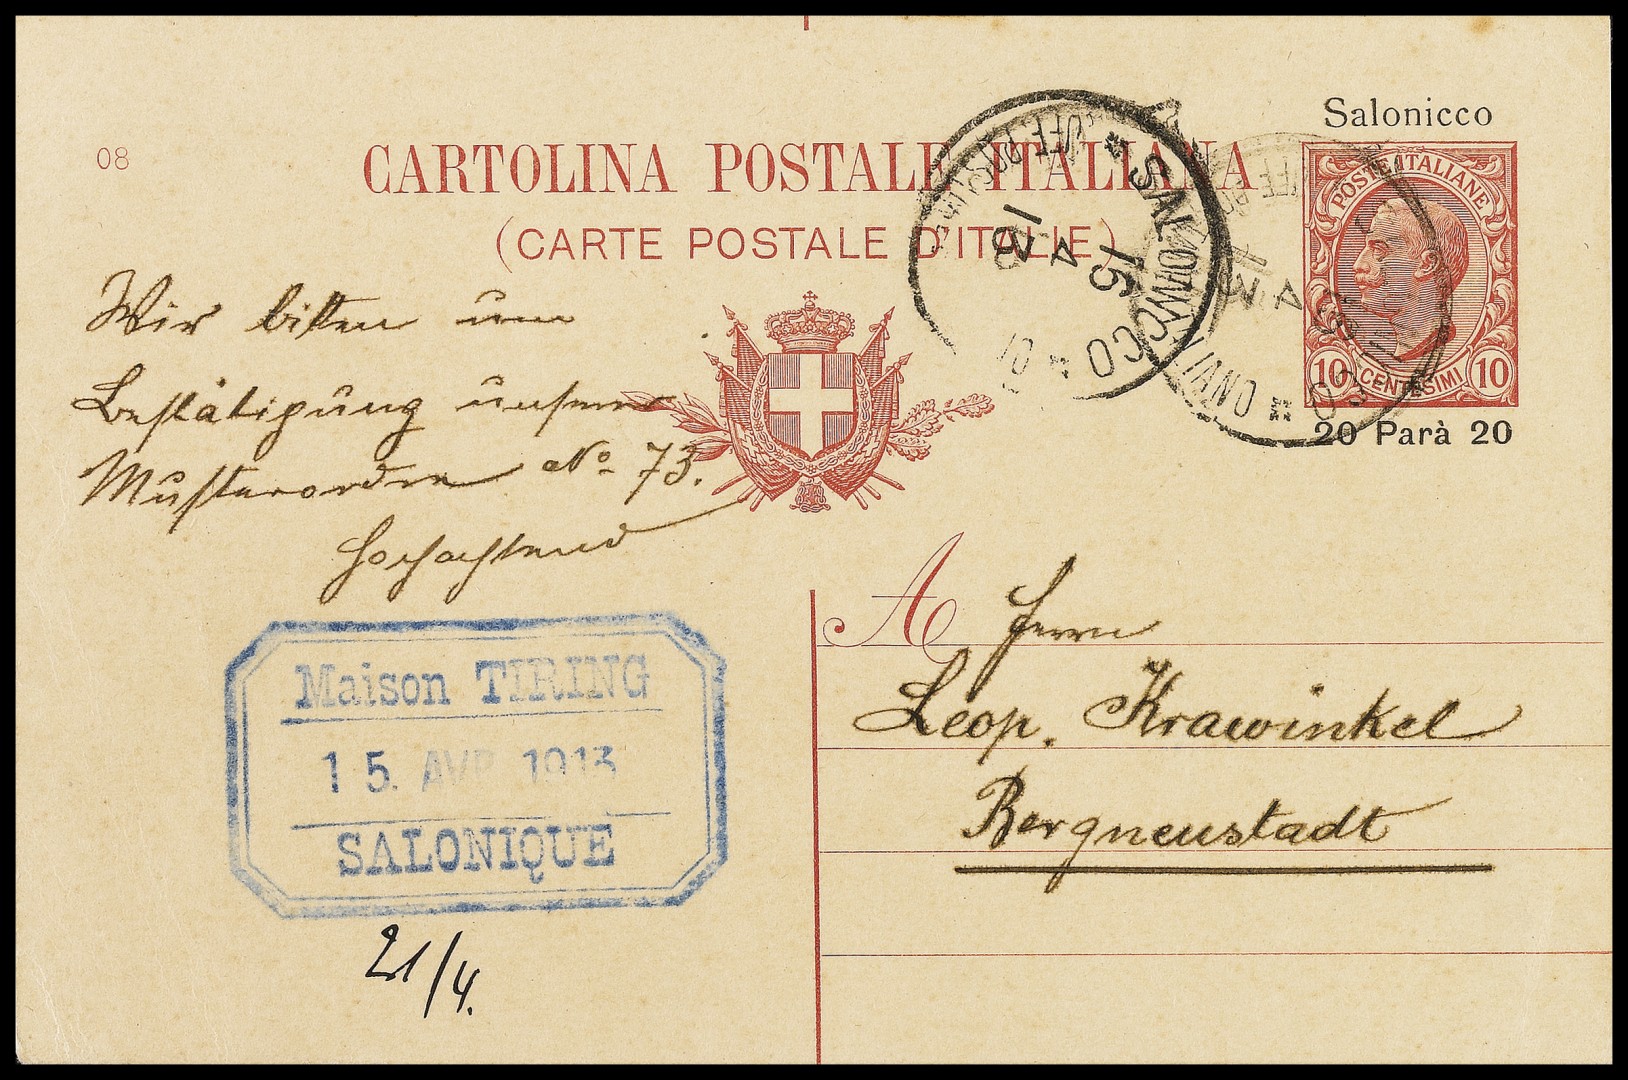 Salonicco
08
CARTOLINA POSTALE ITALIANA
(CARTE POSTALE D'ITALIE)
POSTE ITALIANE
10 CENTESIMI 10
20 Parà 20
SALONICCO
15 4 13
Wir bitten um
Bestätigung unserer
Musterordre No 73.
Hochachtend
Maison TIRING
15. AVR 1913
SALONIQUE
21/4.
A Herrn
Leop. Krawinkel
Bergneustadt